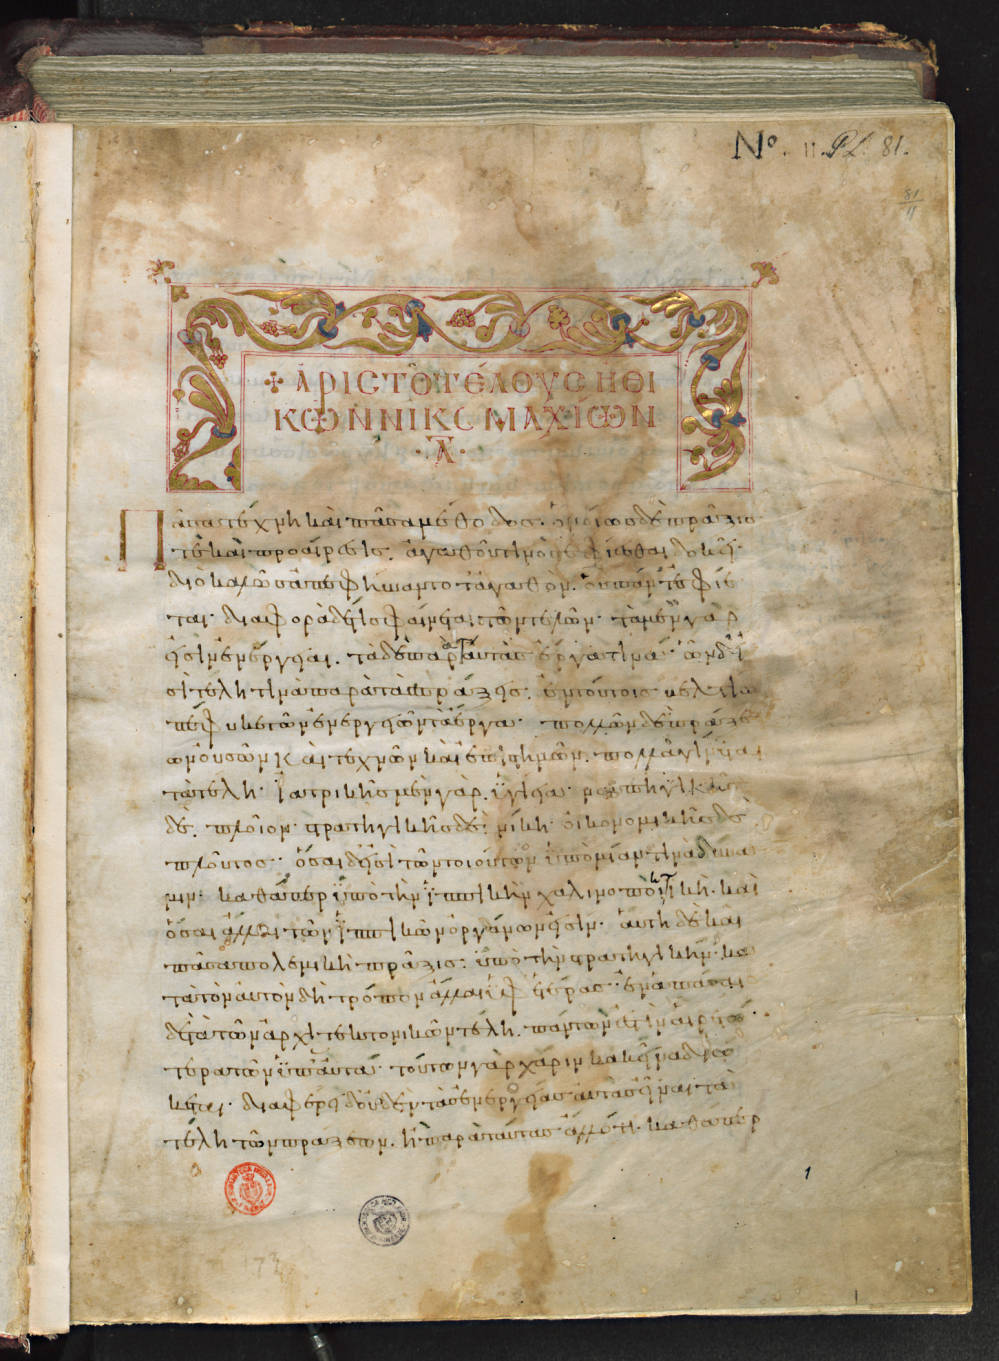 Nº. 11. Pl. 81.
81
11
✢ ἈΡΙΣΤΟΤΈΛΟΥΣ ΗΘΙ
ΚῶΝ ΝΙΚΟΜΑΧΙῶΝ
·Α·
Πᾶσα τέχνη καὶ πᾶσα μέθοδος. ὁμοίως δὲ πρᾶξις
τὲ καὶ προαίρεσις. ἀγαθοῦ τινὸς ἐφίεσθαι δοκεῖ·
διὸ καλῶς ἀπεφήναντο τἀγαθὸν. οὗ πάντ' ἐφίε
ται· διαφορὰ δέ τις φαίνεται τῶν τελῶν· τὰ μὲν γάρ
εἰσιν ἐνέργειαι. τὰ δὲ παρ' αὐτὰς ἔργα τινά· ὧν δ' εἰ
σὶ τέλη τινὰ παρὰ τὰς πράξεις. ἐν τούτοις βελτίω
πέφυκε τῶν ἐνεργειῶν τὰ ἔργα· πολλῶν δὲ πράξε
ων οὐσῶν καὶ τεχνῶν καὶ ἐπιστημῶν. πολλὰ γίνεται
τὰ τέλη· ἰατρικῆς μὲν γὰρ. ὑγίεια· ναυπηγικῆς
δὲ. πλοῖον· στρατηγικῆς δὲ. νίκη· οἰκονομικῆς δὲ
πλοῦτος· ὅσαι δ' εἰσὶ τῶν τοιούτων ὑπὸ μίαν τινὰ δύνα
μιν· καθάπερ ὑπὸ τὴν ἱππικὴν χαλινοποιητικὴ· καὶ
ὅσαι ἄλλαι τῶν ἱππικῶν ὀργάνων εἰσίν· αὕτη δὲ καὶ
πᾶσα πολεμικὴ πρᾶξις. ὑπὸ τὴν στρατηγικήν· κα
τὰ τὸν αὐτὸν δὴ τρόπον ἄλλαι ὑφ' ἑτέρας· ἐν ἁπάσαις
δὲ τὰ τῶν ἀρχιτεκτονικῶν τέλη. πάντων ἐστὶν αἱρετώ
τερα τῶν ὑπ' αὐτά· τούτων γὰρ χάριν κἀκεῖνα διώ
κεται· διαφέρει δ' οὐδὲν τὰς ἐνεργείας αὐτὰς εἶναι τὰ
τέλη τῶν πράξεων. ἢ παρὰ ταύτας ἄλλό τι. καθάπερ
1